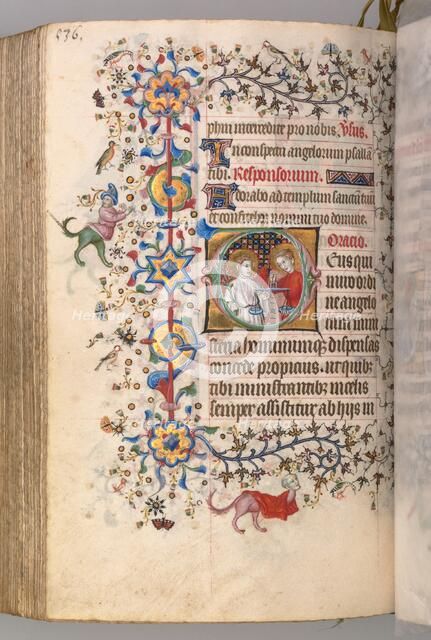 536.
phim intercedite pro nobis. Vsus.
In conspectu angelorum psallā
tibi. Responsorum.
Adorabo ad templum sanctum tuū
et confitebor nomini tuo domine.
Oratio.
Deus qui
miro ordi
ne angelo
rum mini
steria hominumq; dispensas
concede propicius. ut quibꝰ
tibi ministrantibꝰ in celis
semper assistitur ab hijs in
Heritage
Heritage
Heritage
Heritage